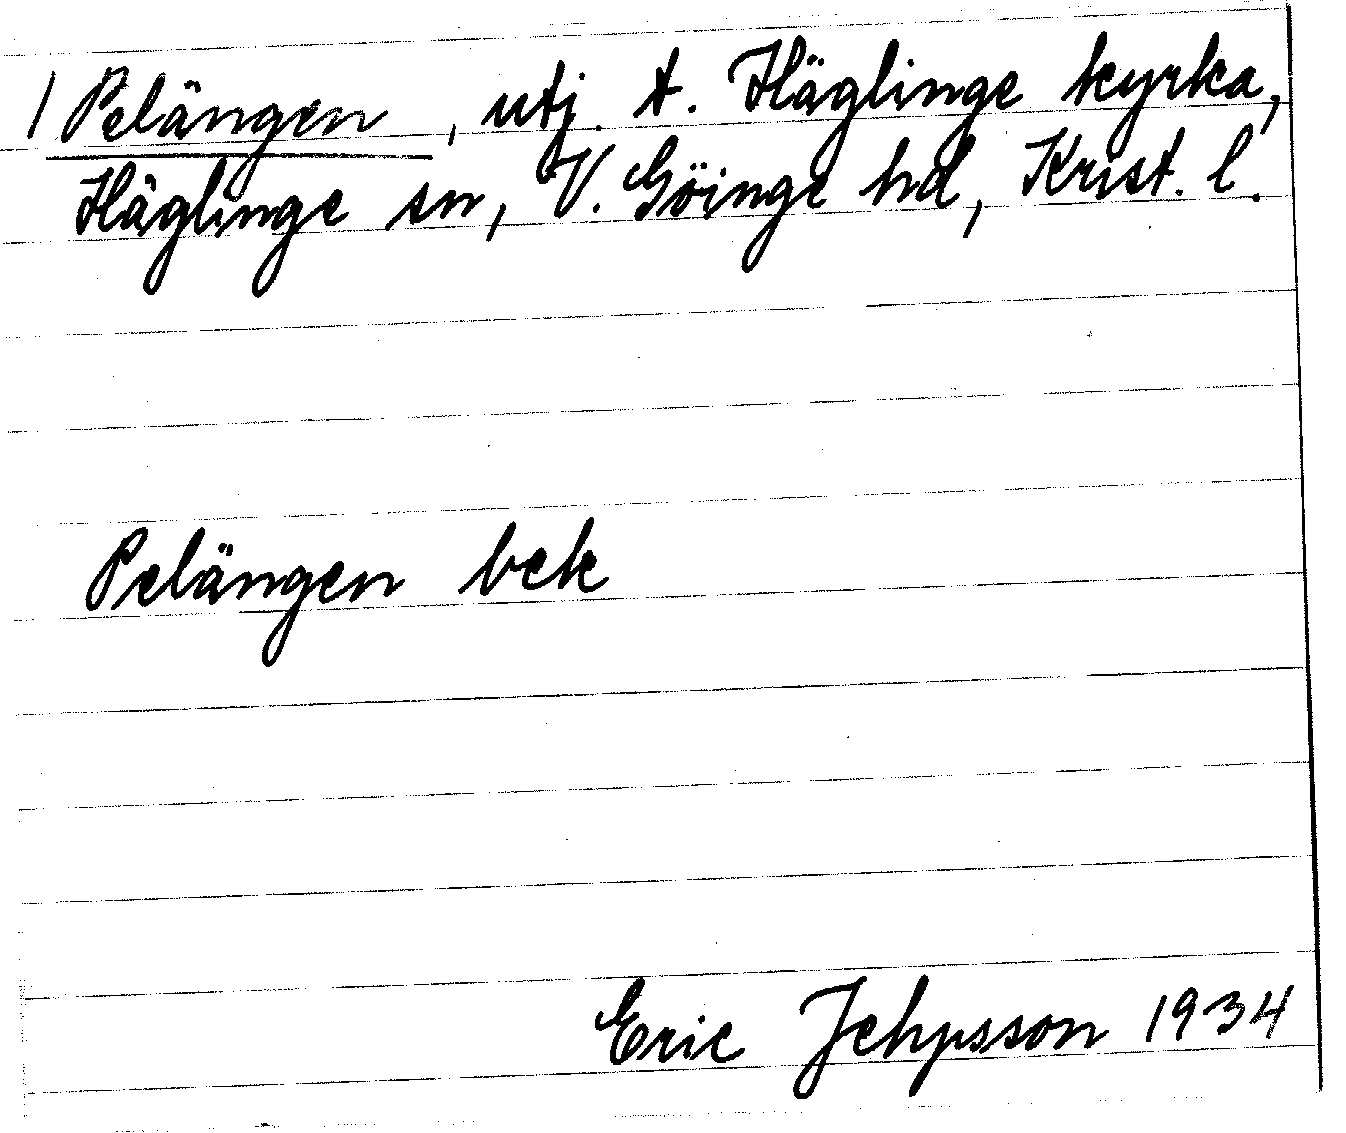 / Pelängen, utj. t. Häglinge kyrka,
Häglinge sn, V. Göinge hd, Krist. l.
Pelängen bek
Eric Jehpsson 1934